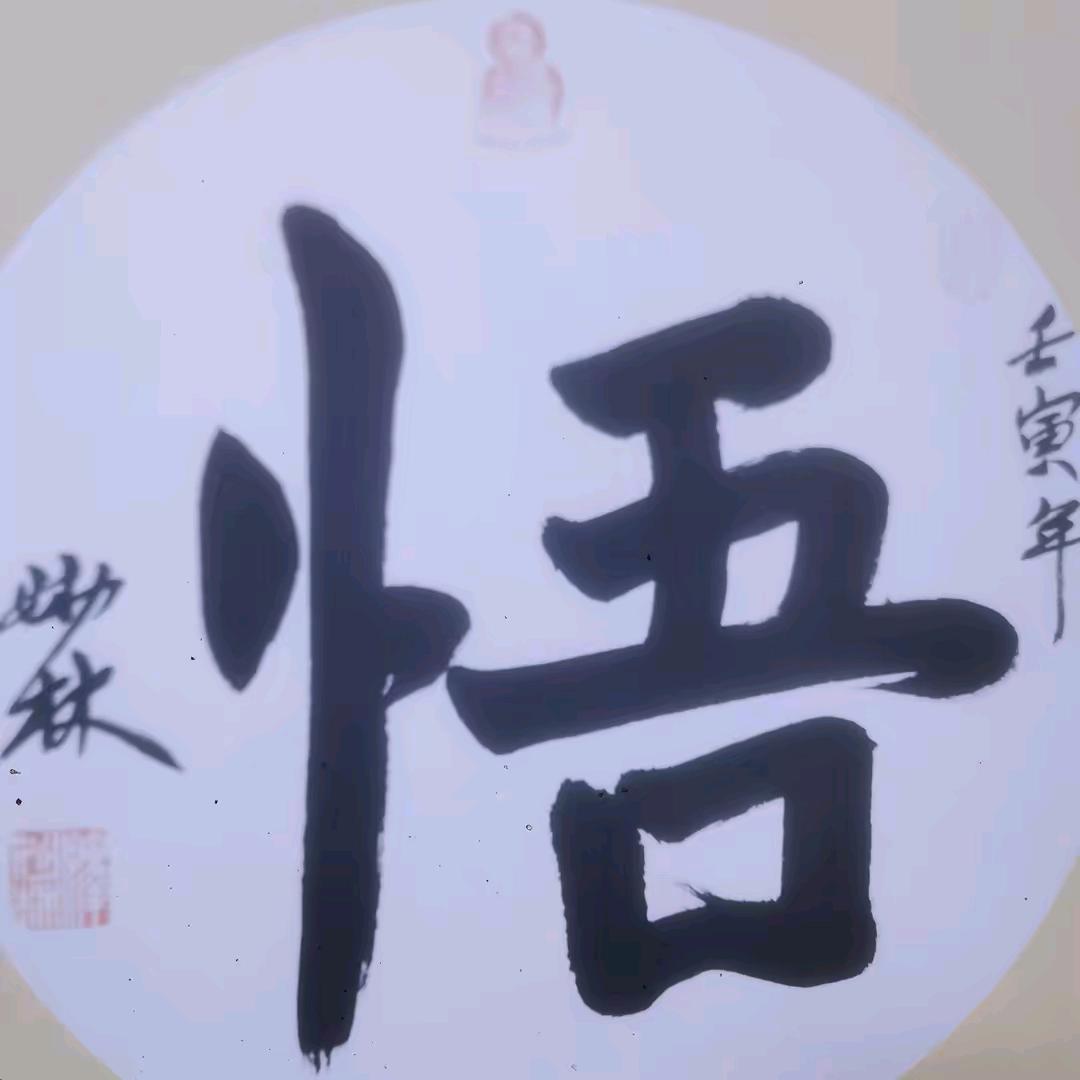 悟
壬寅年
妙林